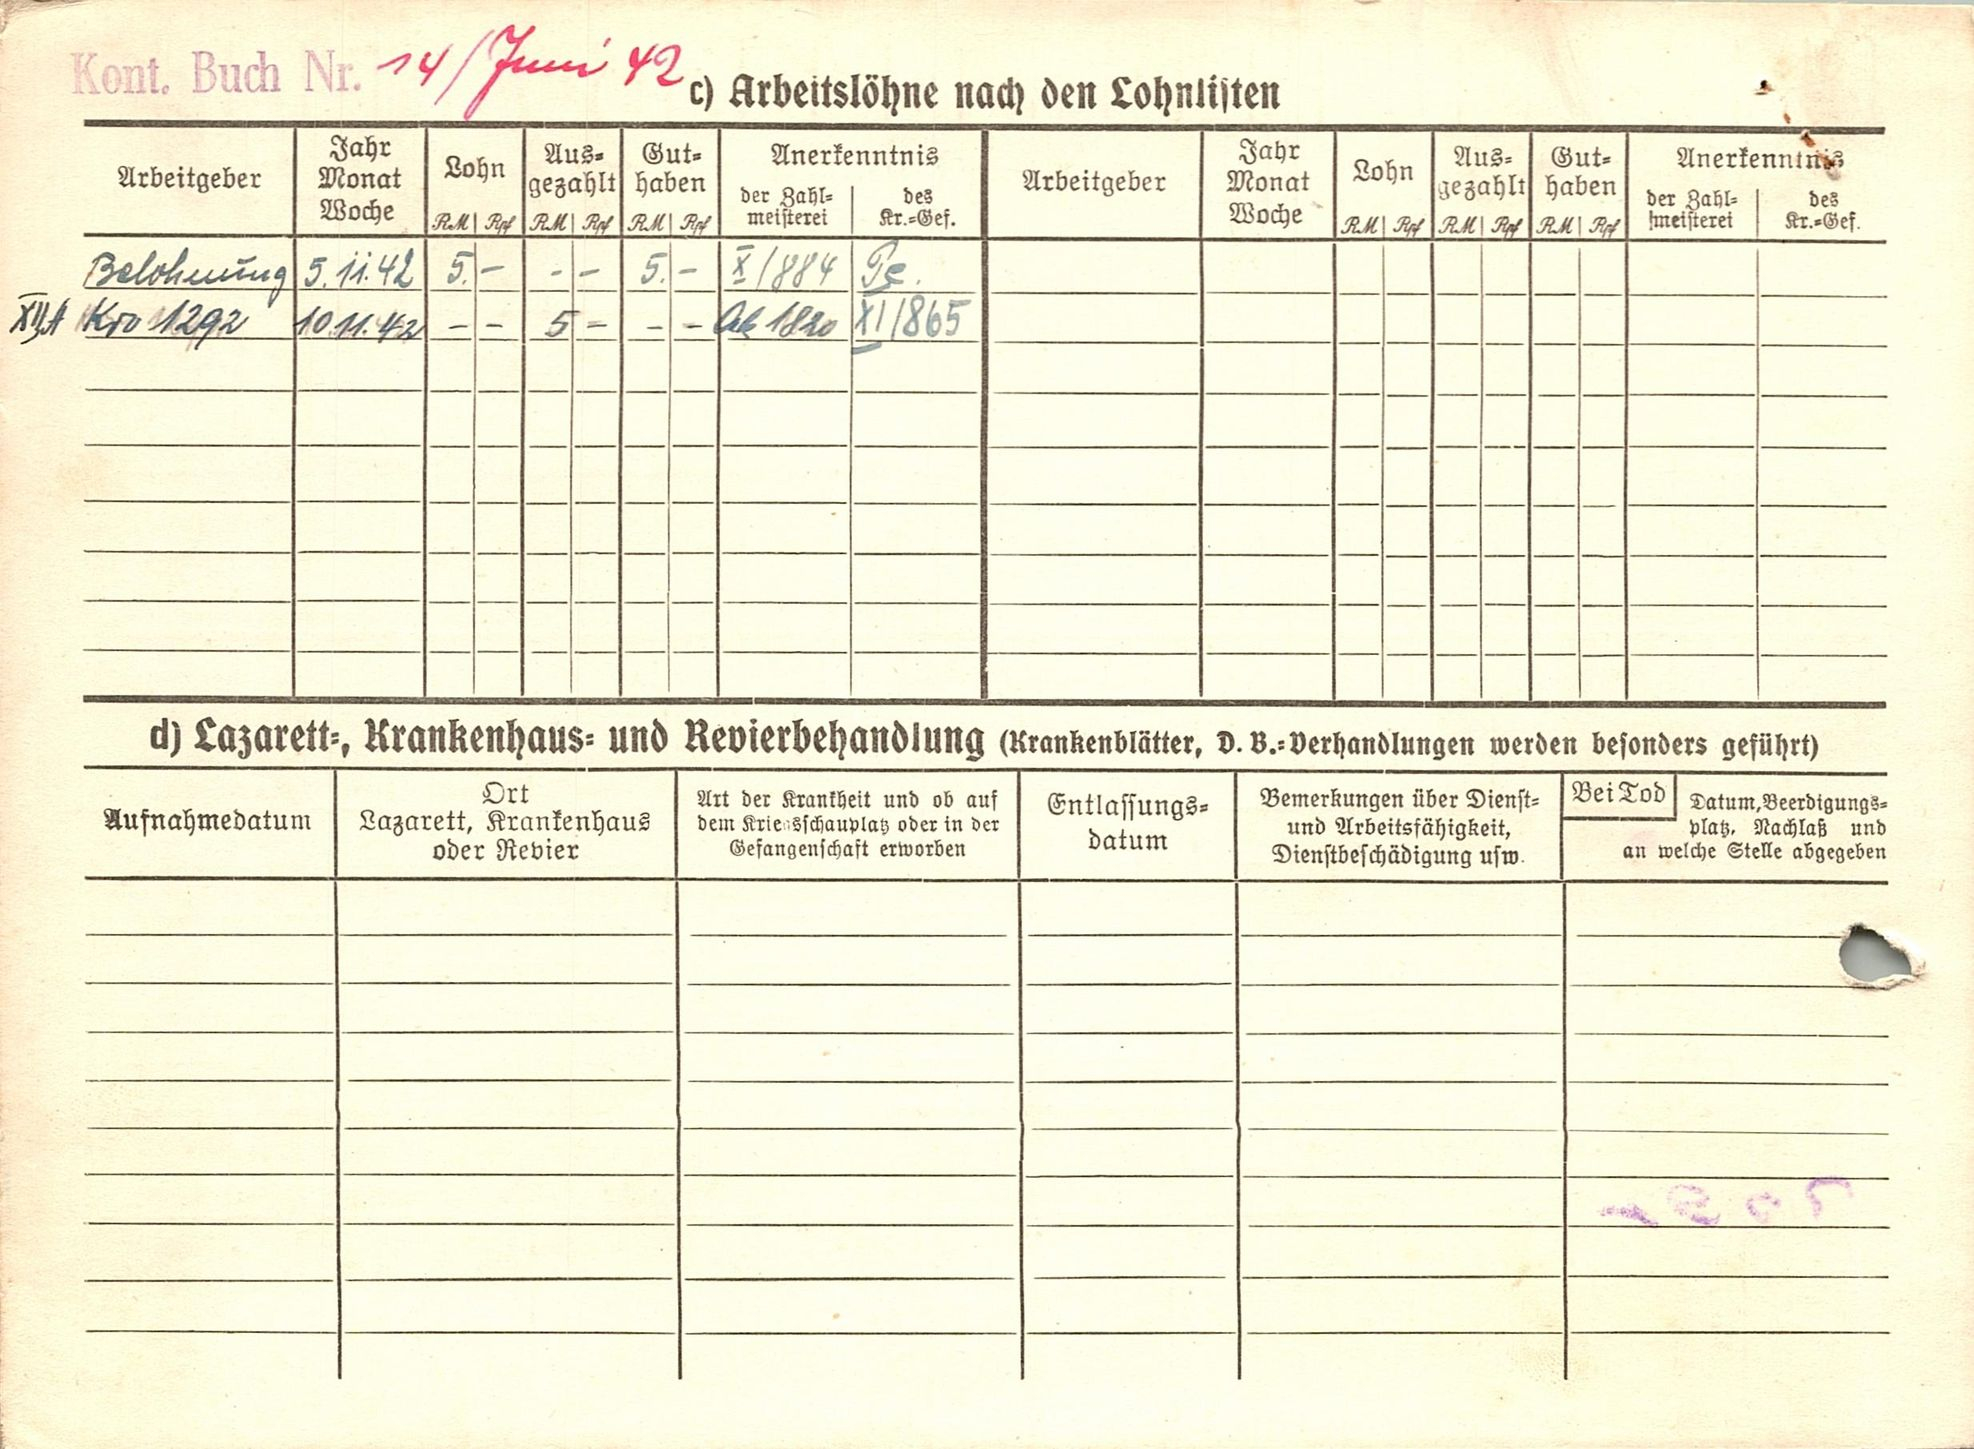 Kont. Buch Nr. 14/Juni 42
c) Arbeitslöhne nach den Lohnlisten
Arbeitgeber Jahr Monat Woche Lohn RM Rpf Aus-gezahlt RM Rpf Gut-haben RM Rpf Anerkenntnis der Zahl-meisterei des Kr.-Gef. Arbeitgeber Jahr Monat Woche Lohn RM Rpf Aus-gezahlt RM Rpf Gut-haben RM Rpf Anerkenntnis der Zahl-meisterei des Kr.-Gef.
Belohnung 5.11.42 5.- -- 5.- X/884
1292 10 11.42 -- 5- -- 1820 XI/865
d) Lazarett-, Krankenhaus- und Revierbehandlung (Krankenblätter, D. B.-Verhandlungen werden besonders geführt)
Aufnahmedatum
Ort
Lazarett, Krankenhaus
oder Revier
Art der Krankheit und ob auf
dem Kriegsschauplatz oder in der
Gefangenschaft erworben
Entlassungs-
datum
Bemerkungen über Dienst-
und Arbeitsfähigkeit,
Dienstbeschädigung usw.
Bei Tod Datum, Beerdigungs-
platz, Nachlaß und
an welche Stelle abgegeben